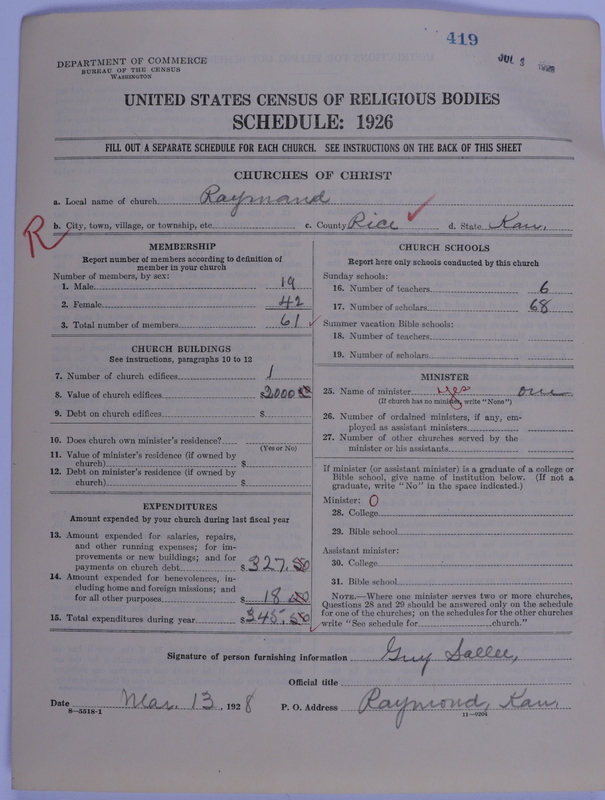 419
JUL 3 1928
DEPARTMENT OF COMMERCE
BUREAU OF THE CENSUS
WASHINGTON
UNITED STATES CENSUS OF RELIGIOUS BODIES
SCHEDULE: 1926
FILL OUT A SEPARATE SCHEDULE FOR EACH CHURCH. SEE INSTRUCTIONS ON THE BACK OF THIS SHEET
CHURCHES OF CHRIST
a. Local name of church Raymond
R
b. City, town, village, or township, etc. c. County Rice d. State Kan.
MEMBERSHIP
Report number of members according to definition of
member in your church
Number of members, by sex:
1. Male 19
2. Female 42
3. Total number of members 61
CHURCH BUILDINGS
See instructions, paragraphs 10 to 12
7. Number of church edifices 1
8. Value of church edifices $2000 00
9. Debt on church edifices $
10. Does church own minister's residence?
(Yes or No)
11. Value of minister's residence (if owned by
church) $
12. Debt on minister's residence (if owned by
church) $
EXPENDITURES
Amount expended by your church during last fiscal year
13. Amount expended for salaries, repairs,
and other running expenses; for im-
provements or new buildings; and for
payments on church debt $327.00
14. Amount expended for benevolences, in-
cluding home and foreign missions; and
for all other purposes 18 00
15. Total expenditures during year $345.00
CHURCH SCHOOLS
Report here only schools conducted by this church
Sunday schools:
16. Number of teachers 6
17. Number of scholars 68
Summer vacation Bible schools:
18. Number of teachers
19. Number of scholars
MINISTER
25. Name of minister yes one
(If church has no minister, write "None")
26. Number of ordained ministers, if any, em-
ployed as assistant ministers
27. Number of other churches served by the
minister or his assistants
If minister (or assistant minister) is a graduate of a college or
Bible school, give name of institution below. (If not a
graduate, write "No" in the space indicated.)
Minister: 0
28. College
29. Bible school
Assistant minister:
30. College
31. Bible school
NOTE.—Where one minister serves two or more churches,
Questions 28 and 29 should be answered only on the schedule
for one of the churches; on the schedules for the other churches
write "See schedule for church."
Signature of person furnishing information Guy Sallee,
Official title
Date Mar. 13, 1928 P. O. Address Raymond, Kan.
8—5518-1 11—9204